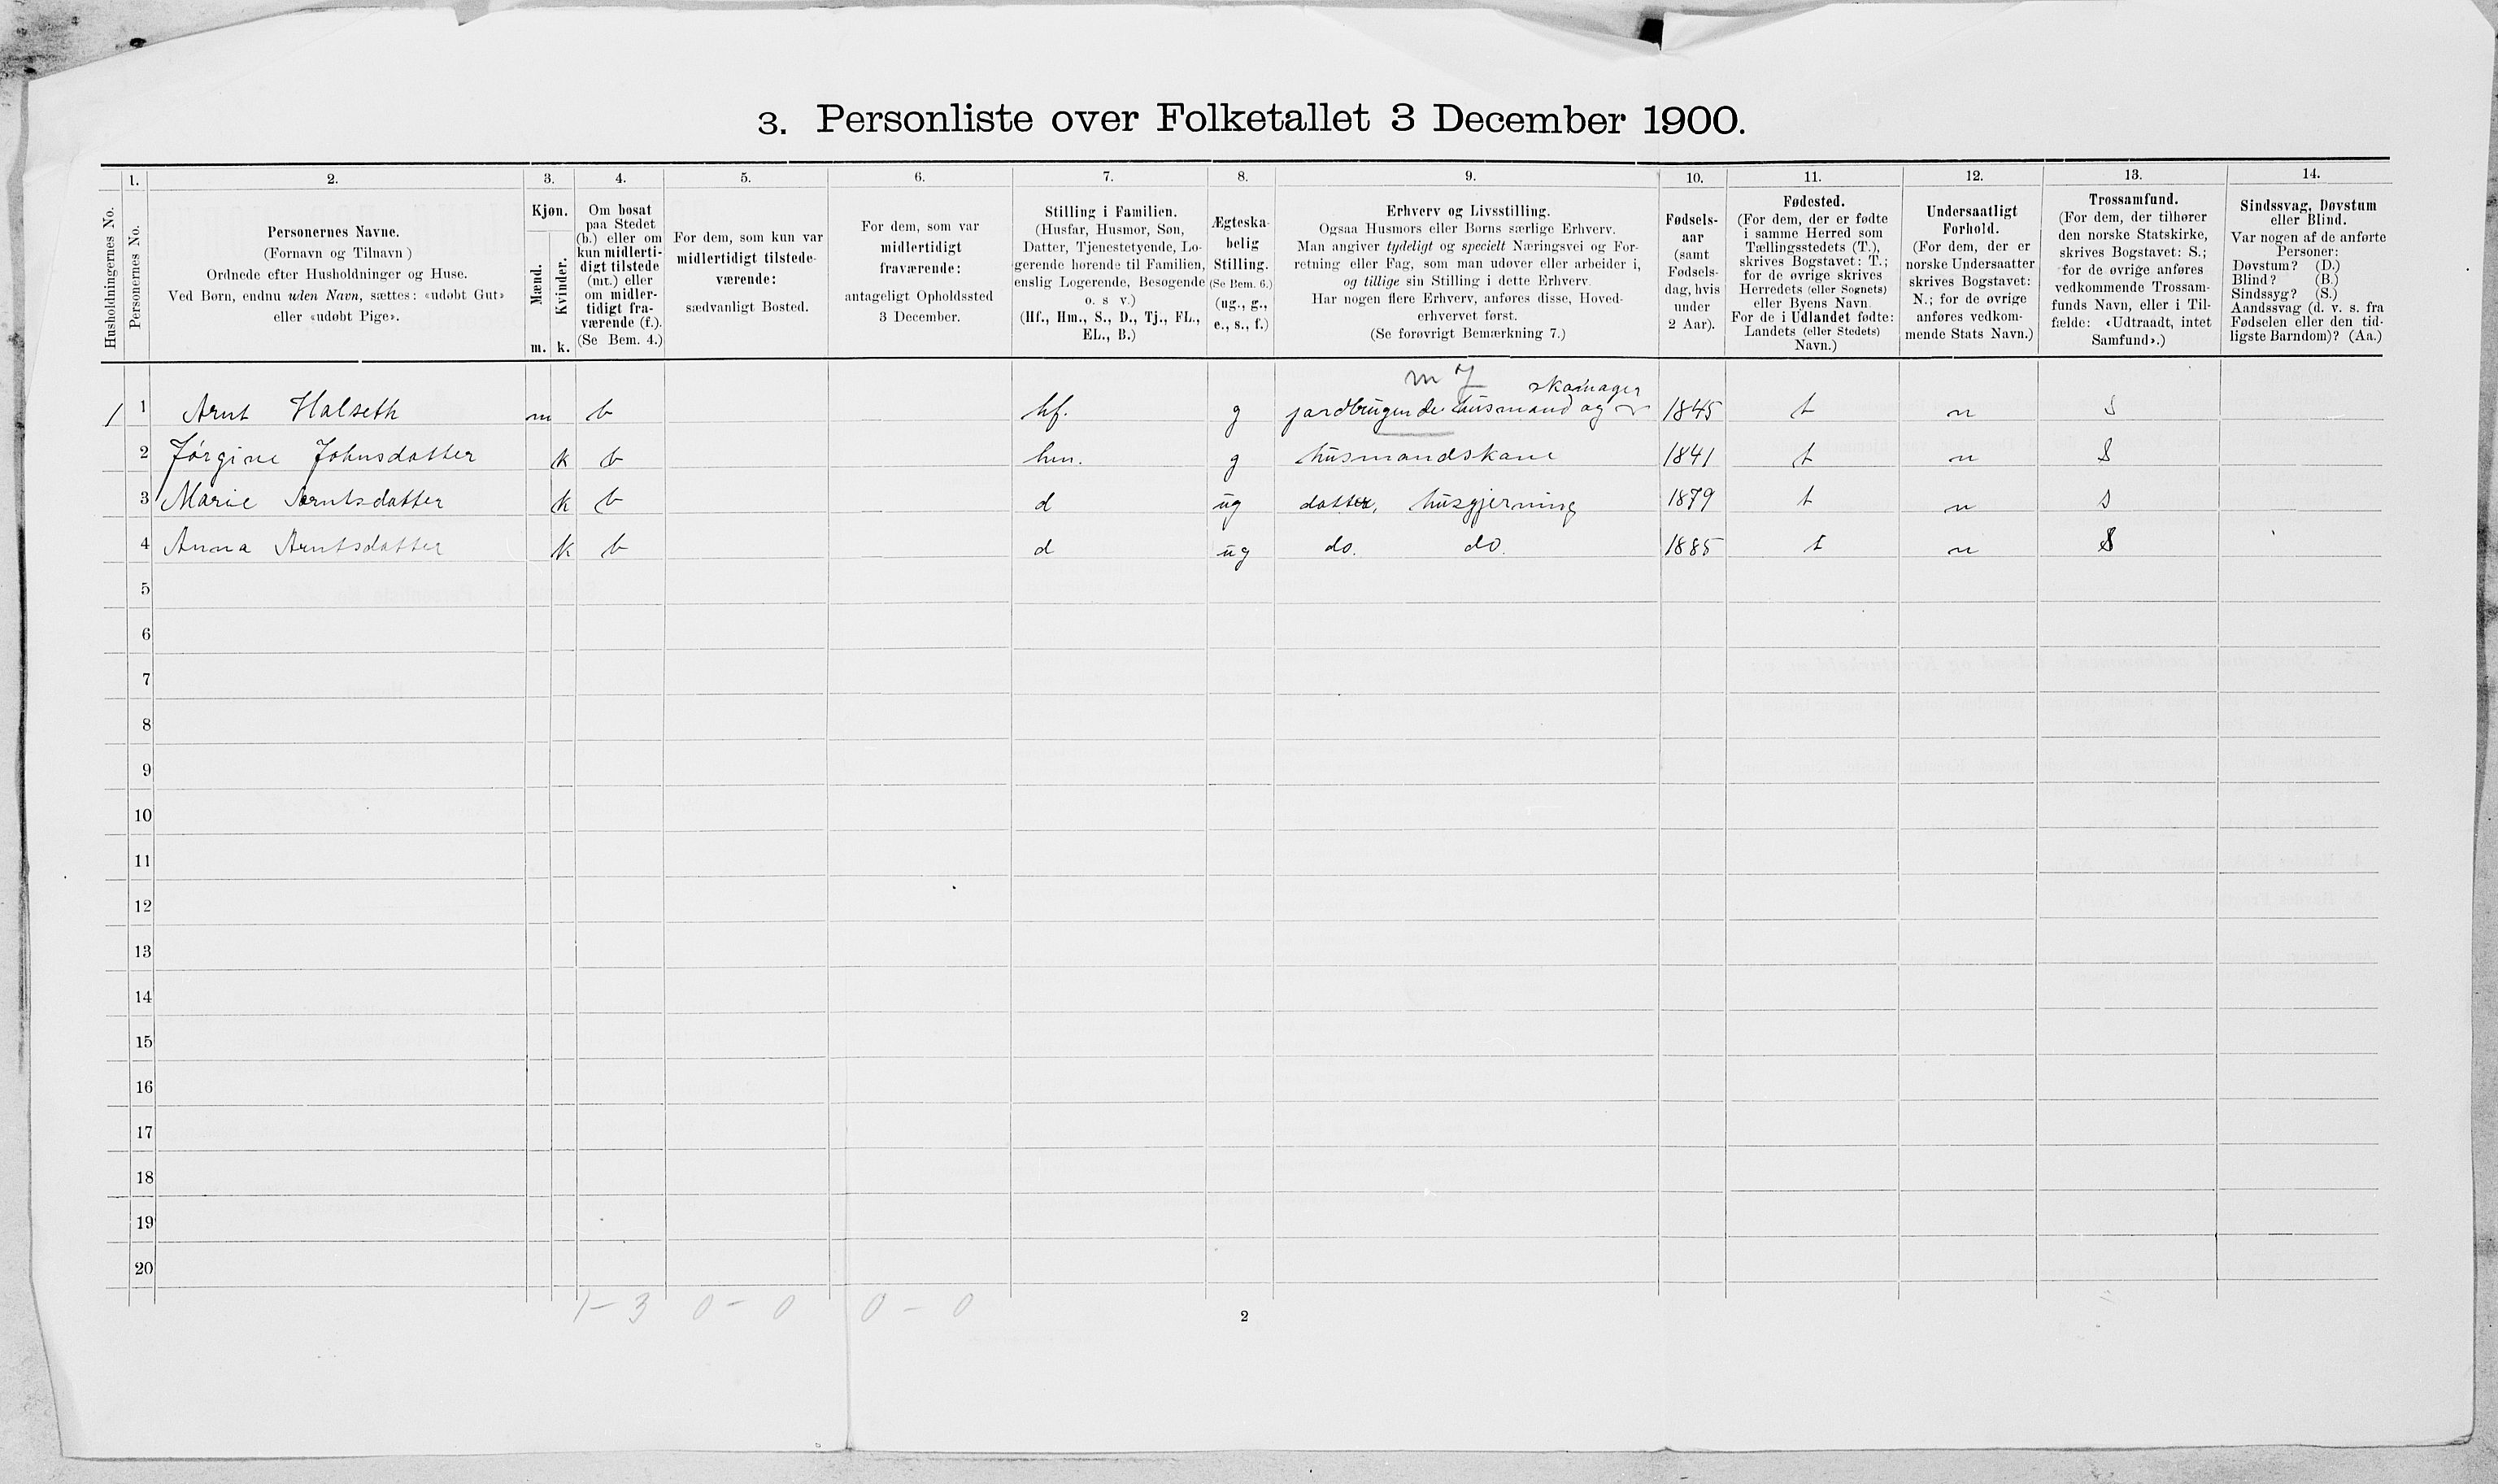 3. Personliste over Folketallet 3 December 1900.
1. 2. 3. 4. 5. 6. 7. 8. 9. 10. 11. 12. 13. 14.
Husholdningernes No.
Personernes No.
Personernes Navne.
(Fornavn og Tilnavn)
Ordnede efter Husholdninger og Huse.
Ved Børn, endnu uden Navn, sættes: «udøbt Gut»
eller «udøbt Pige».
Kjøn.
Mænd.
Kvinder.
m. k.
Om bosat
paa Stedet
(b.) eller om
kun midlerti-
digt tilstede
(mt.) eller
om midler-
tidigt fra-
værende (f.).
(Se Bem. 4.)
For dem, som kun var
midlertidigt tilstede-
værende:
sædvanligt Bosted.
For dem, som var
midlertidigt
fraværende:
antageligt Opholdssted
3 December.
Stilling i Familien.
(Husfar, Husmor, Søn,
Datter, Tjenestetyende, Lo-
gerende hørende til Familien,
enslig Logerende, Besøgende
o. s v.)
(Hf., Hm., S., D., Tj., FL.,
EL., B.)
Ægteska-
belig
Stilling.
(Se Bem. 6.)
(ug., g.,
e., s., f.)
Erhverv og Livsstilling.
Ogsaa Husmors eller Børns særlige Erhverv.
Man angiver tydeligt og specielt Næringsvei og For-
retning eller Fag, som man udøver eller arbeider i,
og tillige sin Stilling i dette Erhverv.
Har nogen flere Erhverv, anføres disse, Hoved-
erhvervet først.
(Se forøvrigt Bemærkning 7.)
Fødsels-
aar
(samt
Fødsels-
dag, hvis
under
2 Aar).
Fødested.
(For dem, der er fødte
i samme Herred som
Tællingsstedets (T.),
skrives Bogstavet: T.;
for de øvrige skrives
Herredets (eller Sognets)
eller Byens Navn.
For de i Udlandet fødte:
Landets (eller Stedets)
Navn.)
Undersaatligt
Forhold.
(For dem, der er
norske Undersaatter
skrives Bogstavet:
N.; for de øvrige
anføres vedkom-
mende Stats Navn.)
Trossamfund.
(For dem, der tilhører
den norske Statskirke,
skrives Bogstavet: S.;
for de øvrige anføres
vedkommende Trossam-
funds Navn, eller i Til-
fælde: «Udtraadt, intet
Samfund».)
Sindssvag, Døvstum
eller Blind.
Var nogen af de anførte
Personer:
Døvstum? (D.)
Blind? (B.)
Sindssyg? (S.)
Aandssvag (d. v. s. fra
Fødselen eller den tid-
ligste Barndom)? (Aa.)
skomager
1 1 Arnt Halseth m b hf. g jordbrugende husmand og 1845 t n S
2 Jørgine Johnsdatter k b hm. g husmandskone 1841 t n S
3 Marie Arntsdatter k b d ug datter, husgjerning 1879 t n S
4 Anna Arntsdatter k b d ug do. do. 1885 t n S
5
6
7
8
9
10
11
12
13
14
15
16
17
18
19
20
1 – 3 0 – 0 0 – 0
2